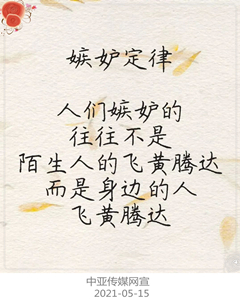 嫉妒定律
人们嫉妒的
往往不是
陌生人的飞黄腾达
而是身边的人
飞黄腾达
中亚传媒网宣
2021-05-15